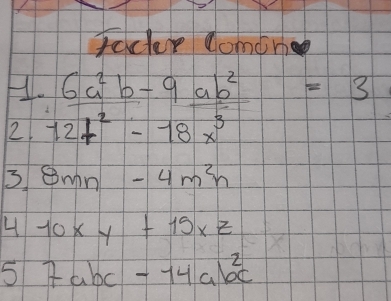 Factor Común
1. 6a²b - 9ab² = 3
2. 12t² - 18x³
3. 8mn - 4m²n
4 10xy + 15xz
5 7abc - 14ab²c